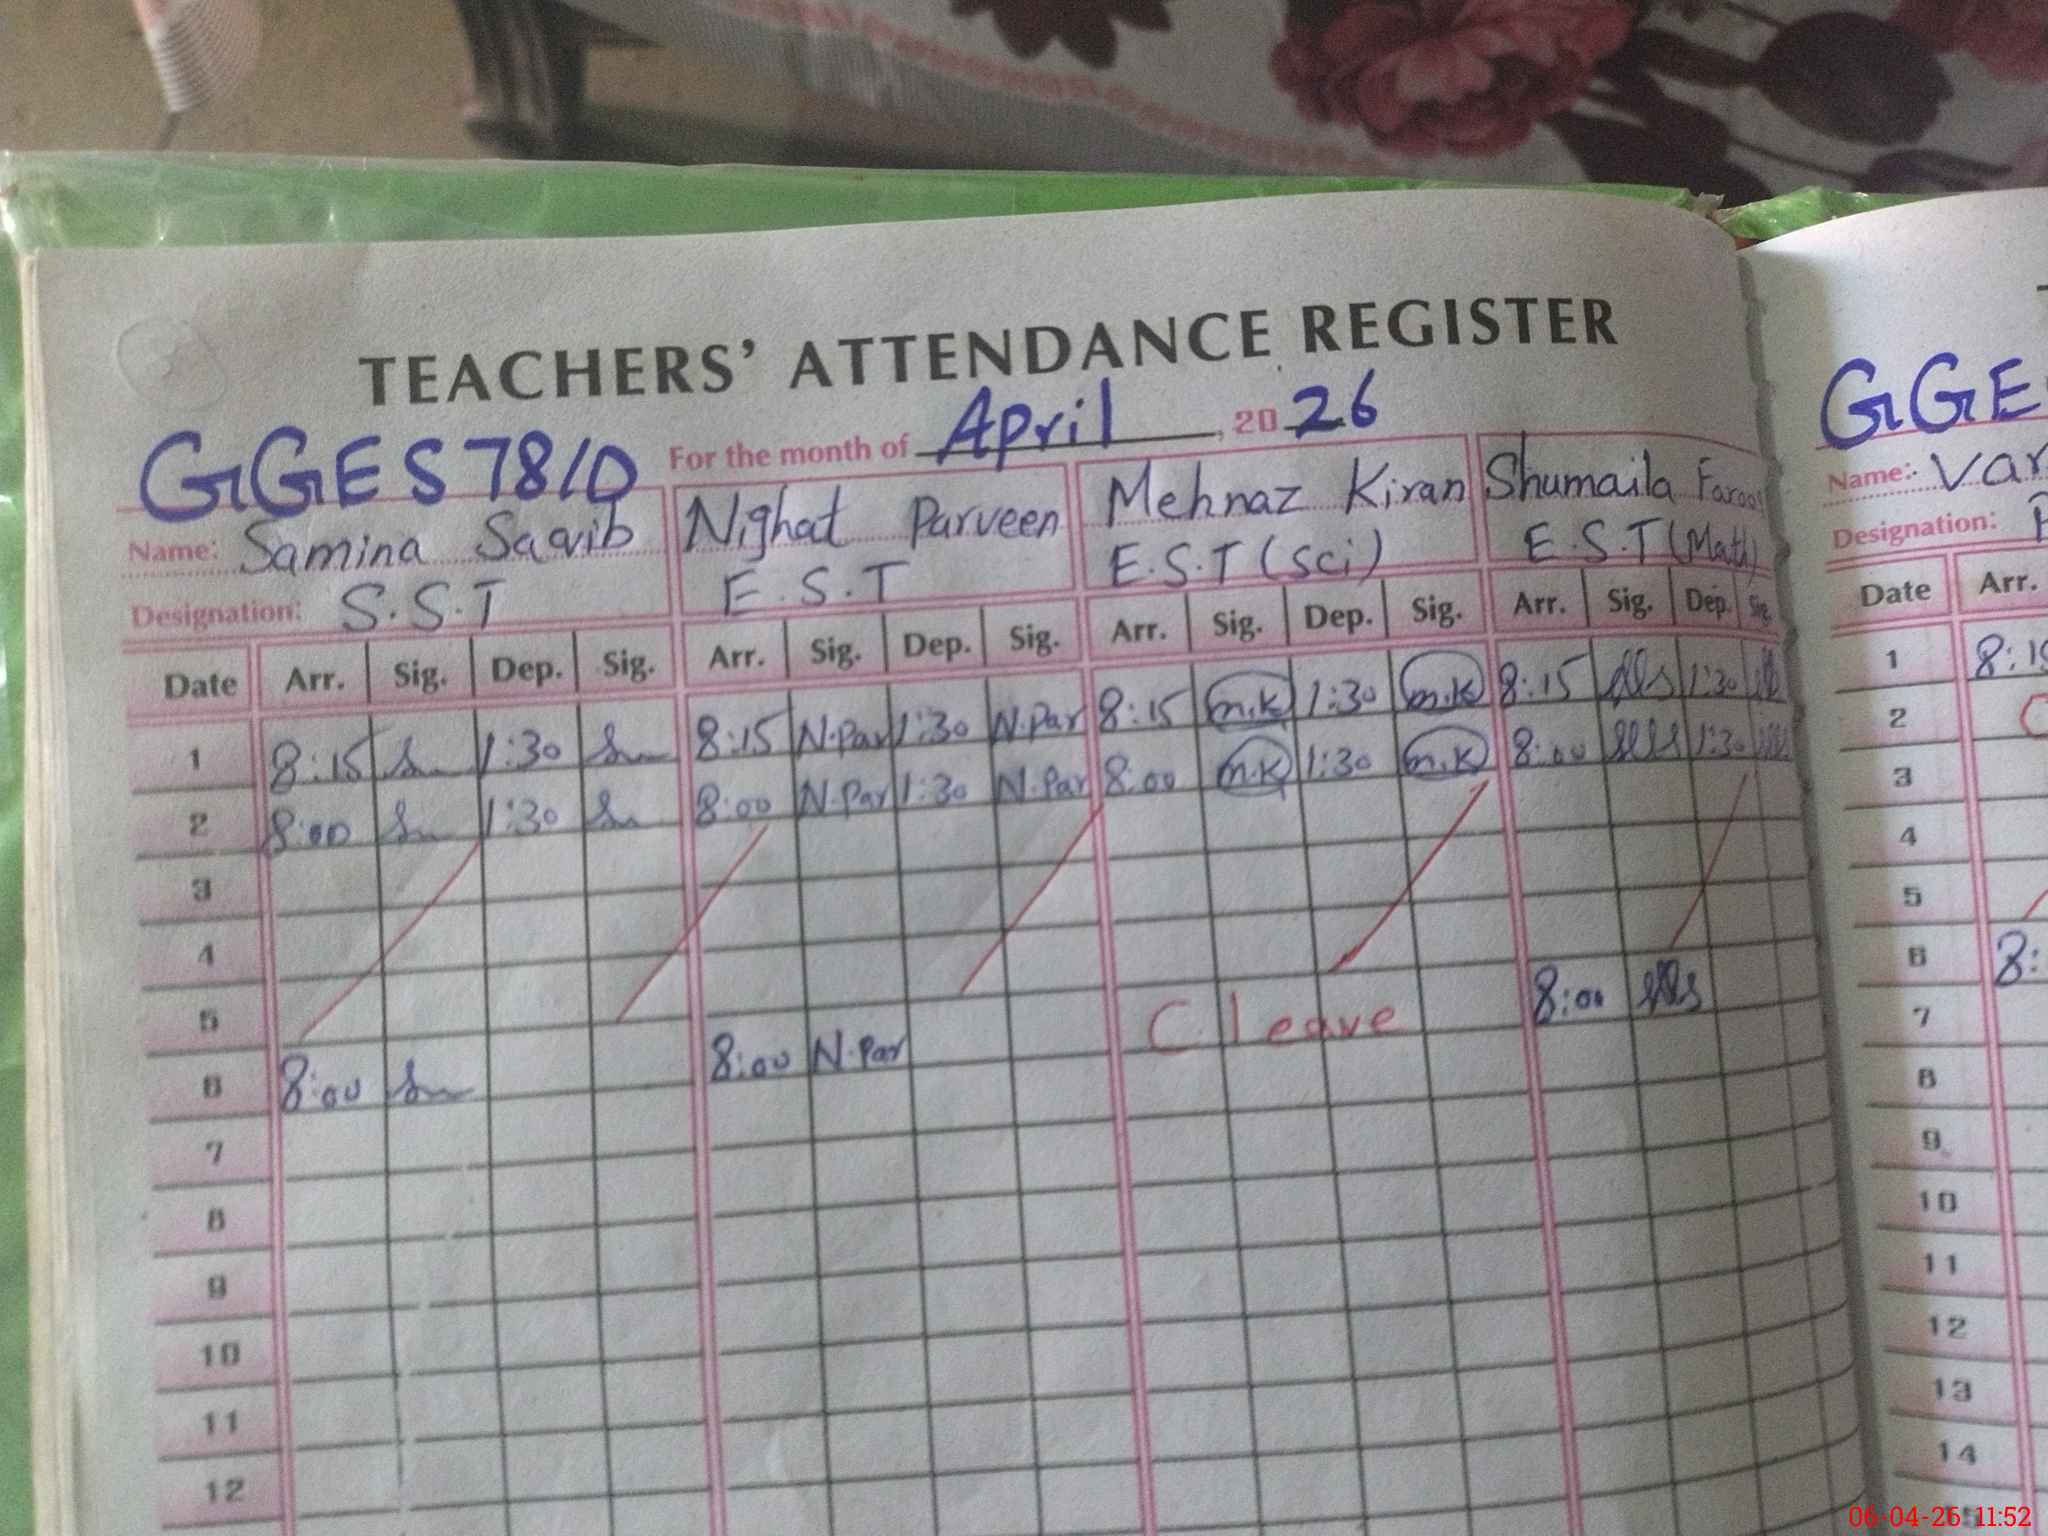 TEACHERS' ATTENDANCE REGISTER
GGES 78/D For the month of April, 2026
Name: Samina Saqib Nighat Parveen Mehnaz Kiran Shumaila
Designation: S.S.T E.S.T E.S.T (Sci) E.S.T (Math)
Date Arr. Sig. Dep. Sig. Arr. Sig. Dep. Sig. Arr. Sig. Dep. Sig. Arr. Sig. Dep. Sig.
1 8:15 1:30 8:15 N.Par 1:30 N.Par 8:15 m.K 1:30 m.K 8:15 1:30
2 8:00 1:30 8:00 N.Par 1:30 N.Par 8:00 m.K 1:30 m.K 8:00 1:30
3
4
5
6 8:00 8:00 N.Par C. leave 8:00
7
8
9
10
11
12
GGE
Name:
Designation:
Date Arr.
1 8:15
2
3
4
5
6 8:
7
8
9
10
11
12
13
14
06-04-26 11:52